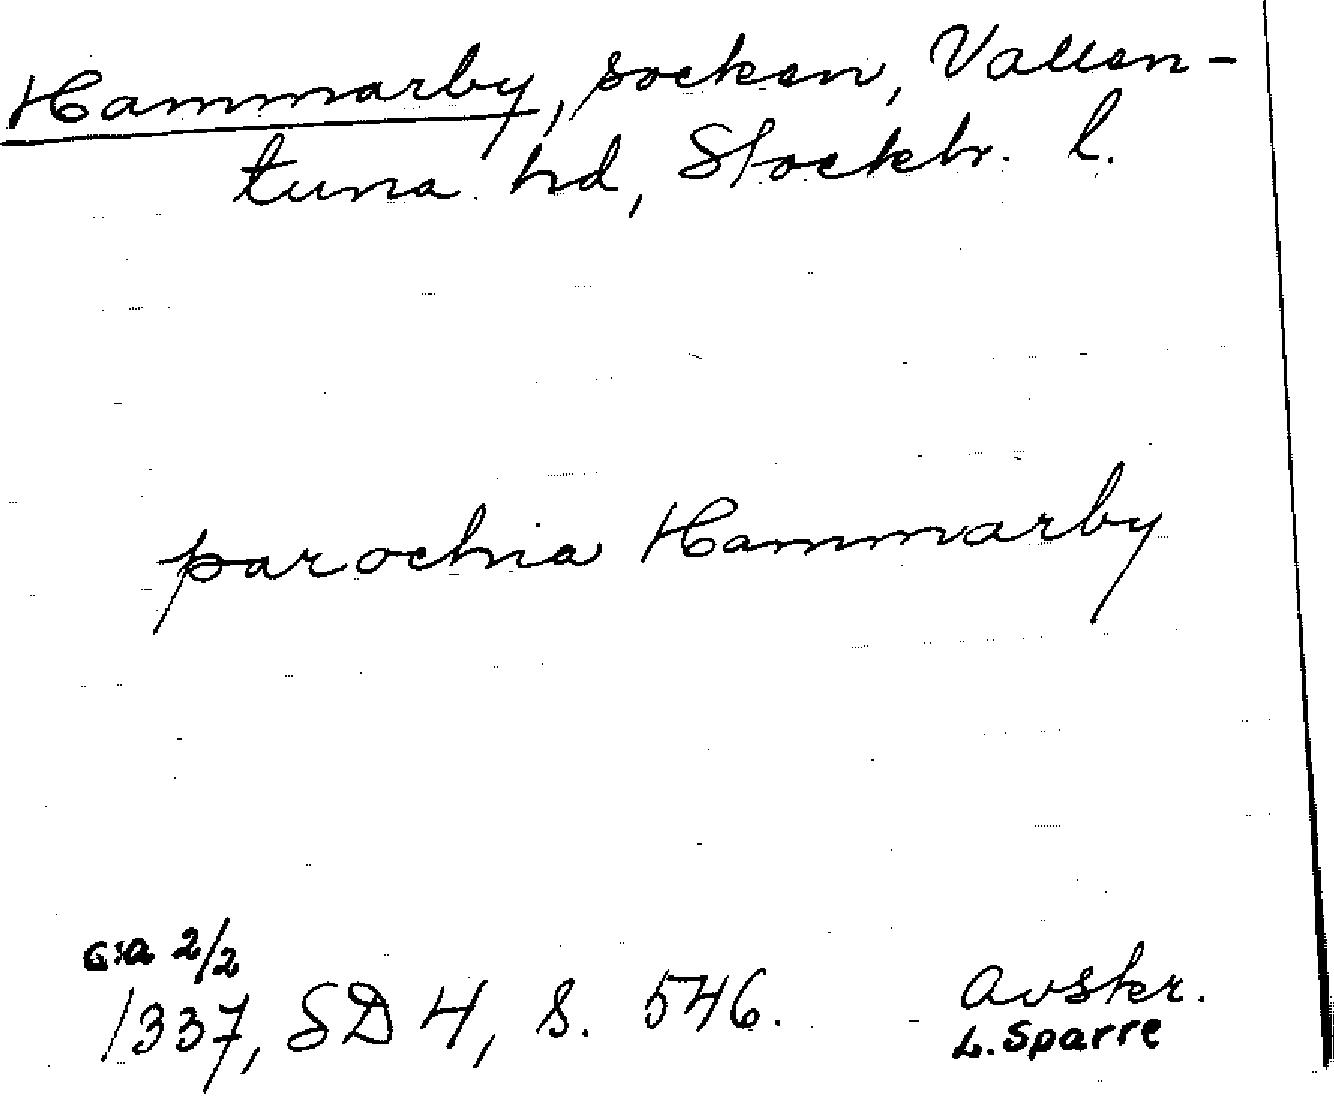 Hammarby, socken, Vallen-
tuna hd, Stockh. l.
parochia Hammarby
c:a 2/2
1337, SD 4, s. 546.
Avskr.
L. Sparre